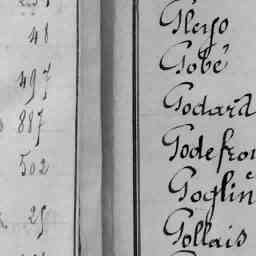 48
497
887
502
25
Gleyo
Gobé
Godard
Godefroi
Goglin
Gollais